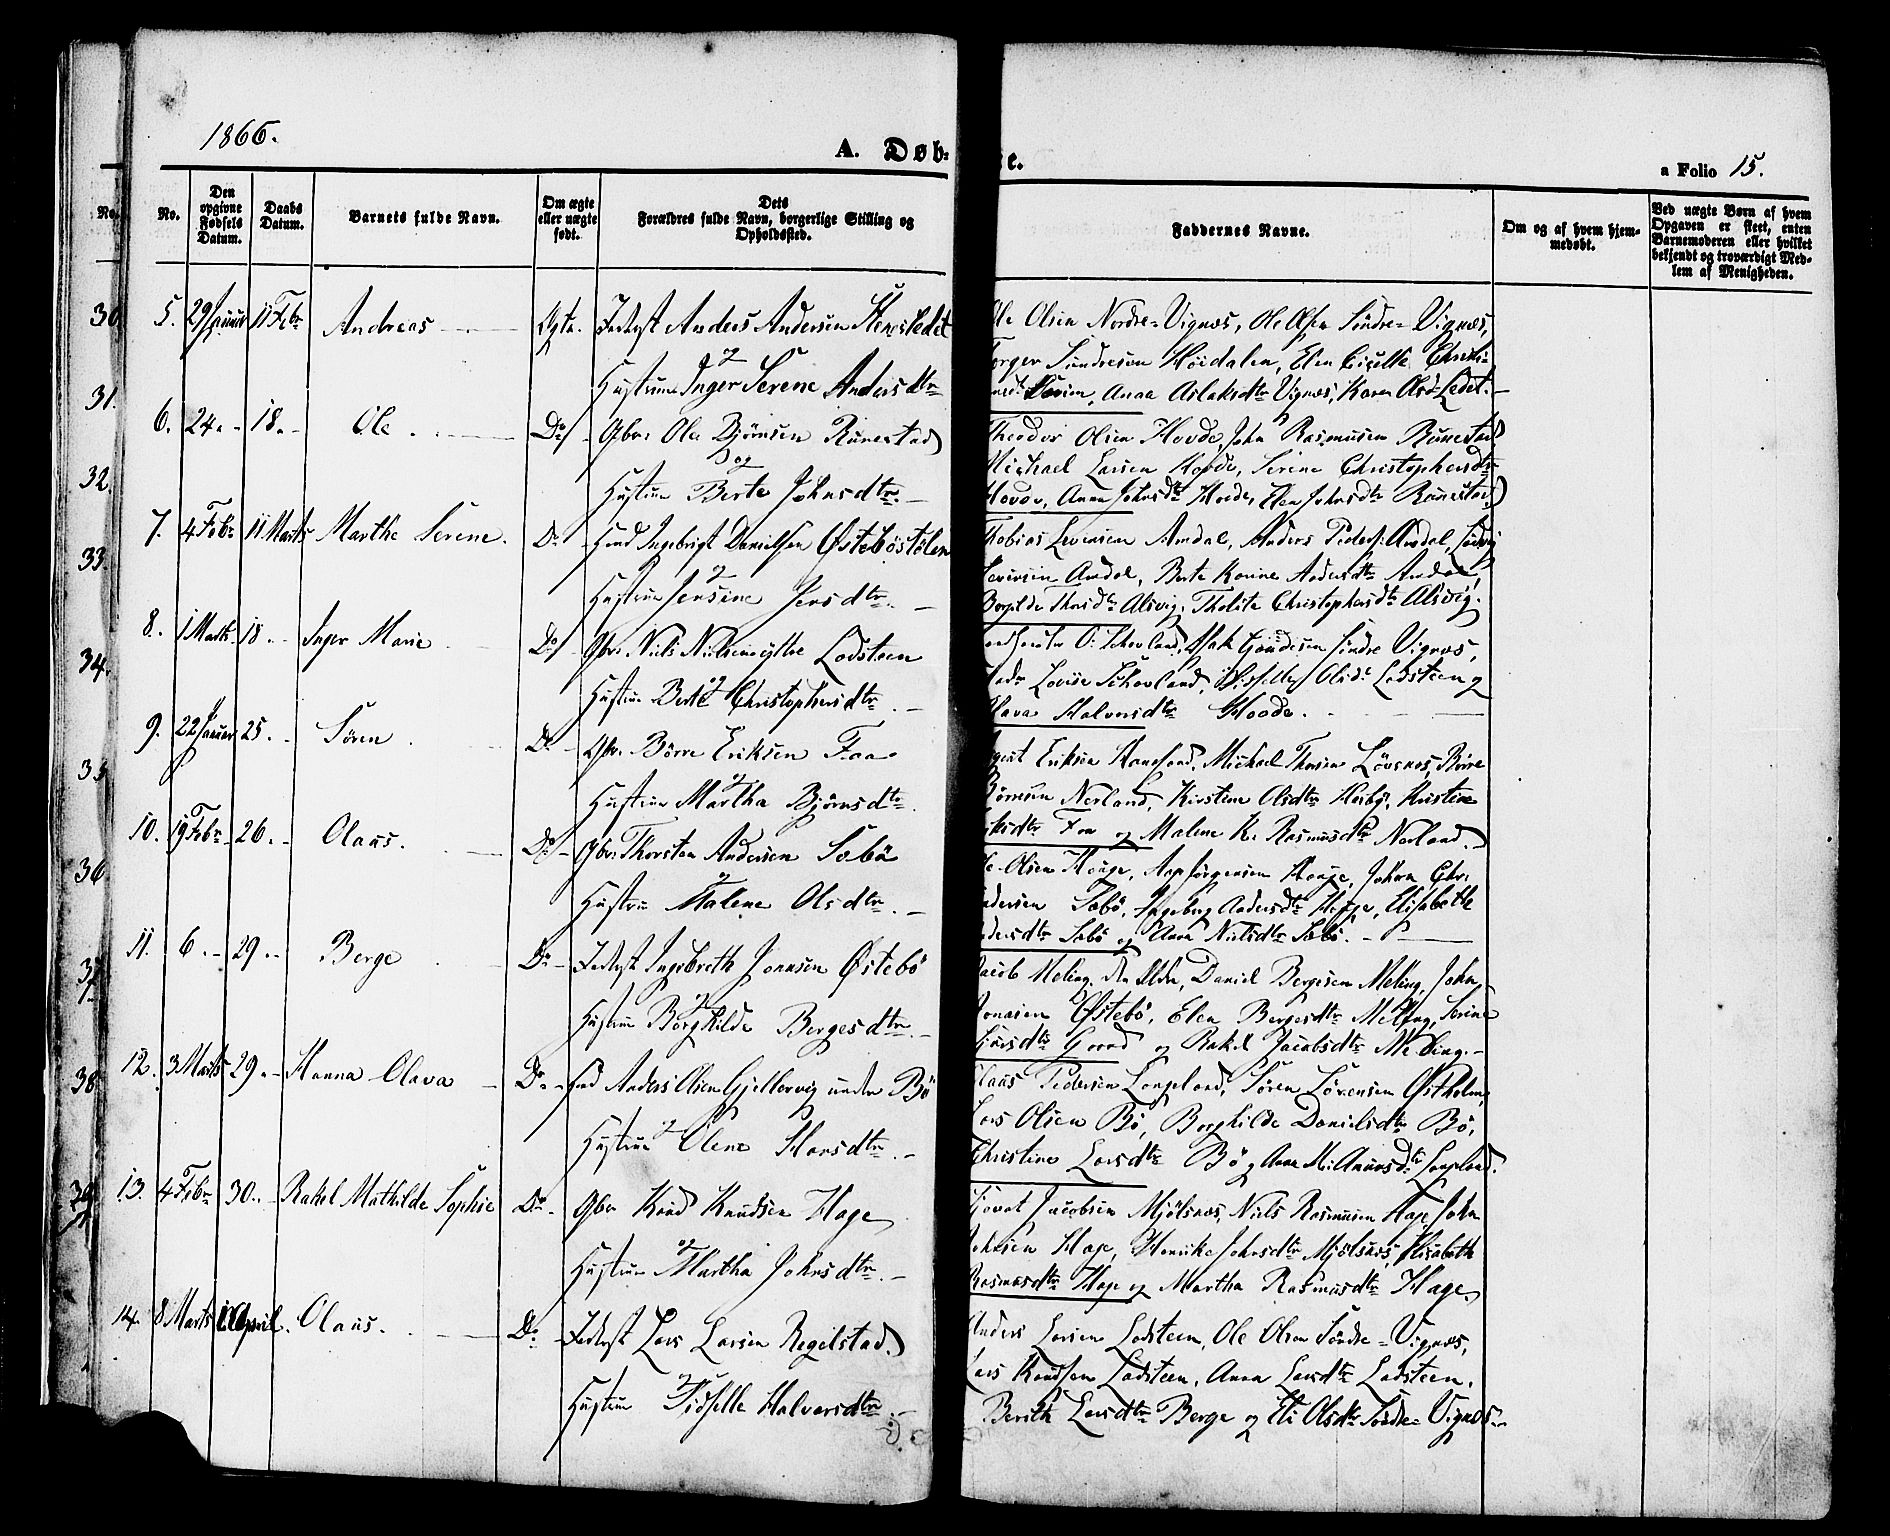 1866.
A. Døb=
e.
a Folio 15.
No.
No.
Den opgivne Fødsels Datum.
Daabs Datum.
Barnets fulde Navn.
Om ægte eller uægte født.
Dets Forældres fulde Navn, borgerlige Stilling og Opholdssted.
Faddernes Navne.
Om og af hvem hjemmedøbt.
Ved uægte Børn af hvem Opgaven er skeet, enten Barnemoderen eller hvilket bekjendt og troværdigt Medlem af Menigheden.
30
31.
32.
33.
34.
35
36
37
38
39
5. 29 Januar 11 Febr Andreas Ægte. Inderst Anders Andersen Stensledet
og
Hustrue Inger Serene Andersdtr
Ole Olsen Nordre=Vignæs, Ole Olsen Söndre=Vignæs,
Torger Sundresøn Høidalen, Elen
Anna Aslaksdtr Vignæs, Karen Olsd Ledet.
6. 24 18 Ole Do Gbr. Ole Bjørnsen Runestad
og
Hustrue Berte Johnsdtr.
Theodor Olsen Hovde, John Rasmusen Runestad
Michael Larsen Hovde, Serine Christophersdtr
Anna Johnsdtr Hovde, Elen Johnsdtr Runestad
7. 4 Febr 11 Marts Marthe Serene. Do Huusmd Ingebrigt Danielsen Østebøstølen
og
Hustrue Jensine Jensdtr.
Tobias Amdal, Anders Peders: Amdal,
Amdal, Berte Karine Andersdtr Amdal,
Borgilde Thorsdtr Alsvig, Tholite Christophersdtr Alsvig.
8. 1 Marts 18 Inger Marie Do Gbr. Niels Nielsen Lodsteen
og
Hustrue Berte Christophersdtr.
Söndre Vignæs,
Lovise Schovland, Olsdr Lodsteen og
Olava Halvorsdtr Hovde.
9. 22 Januar 25. Søren Do Gbr. Børre Eriksen Faa
og
Hustrue Martha Bjørnsdtr.
Eriksen Michael Thorsen Løvsnes, Børre
Nerland, Kirstene Olsdtr Kristine
Eriksdtr Faa og Malene K. Rasmusdtr Nerland.
10. 19 Febr 26. Olaus. Do Gbr. Thorsten Andersen Sæbø
og
Hustrue Malene Olsdtr.
Ole Olsen Hauge, Jørgensen Hauge, Johan Chr.
Andersen Sæbø, Ingeborg Andersdtr Hauge, Elisabeth
Andersdtr Sæbø og Anna Nielsdtr Sæbø.
11. 6 29 Berge Do Inderst Ingebreth Jonasen Østebø
og
Hustrue Borghilde Bergesdtr
Jacob Meling den Eldre, Daniel Bergesen Meling, John
Jonasen Østebø, Elen Bergesdtr Meling, Serine
og Rakel Jacobsdtr Meling.
12. 3 Marts 29 Hanna Olava Do Anders Olsen Gjellervig under Bø
og
Hustrue Olene Hansdtr.
Claus Pedersen Langeland, Søren Sørensen Østholm,
Lars Olsen Bø, Borghilde Danielsdtr Bø,
Christine Larsdtr Bø og Anna M. Langeland.
13. 4 Febr 30. Rakel Mathilde Sophie Do Gbr Knud Knudsen Hage
og
Hustrue Martha Johnsdtr.
Jacobsen Mjølsnæs, Niels Rasmusen Hage, John
Johnsen Hage, Henrike Johnsdtr Mjølsnæs, Elisabeth
Rasmusdtr Hage og Martha Rasmusdtr Hage.
14. 8 Marts 1 April. Olaus. Do Inderst Lars Larsen Regilstad
og
Hustrue Sidselle Halvorsdtr.
Anders Larsen Lodsteen, Ole Olsen Söndre=Vignæs,
Lars Knudsen Lodsteen, Anna Larsdtr Lodsteen.
Berith Larsdtr Berge og Eli Olsdtr Söndre=Vignæs.